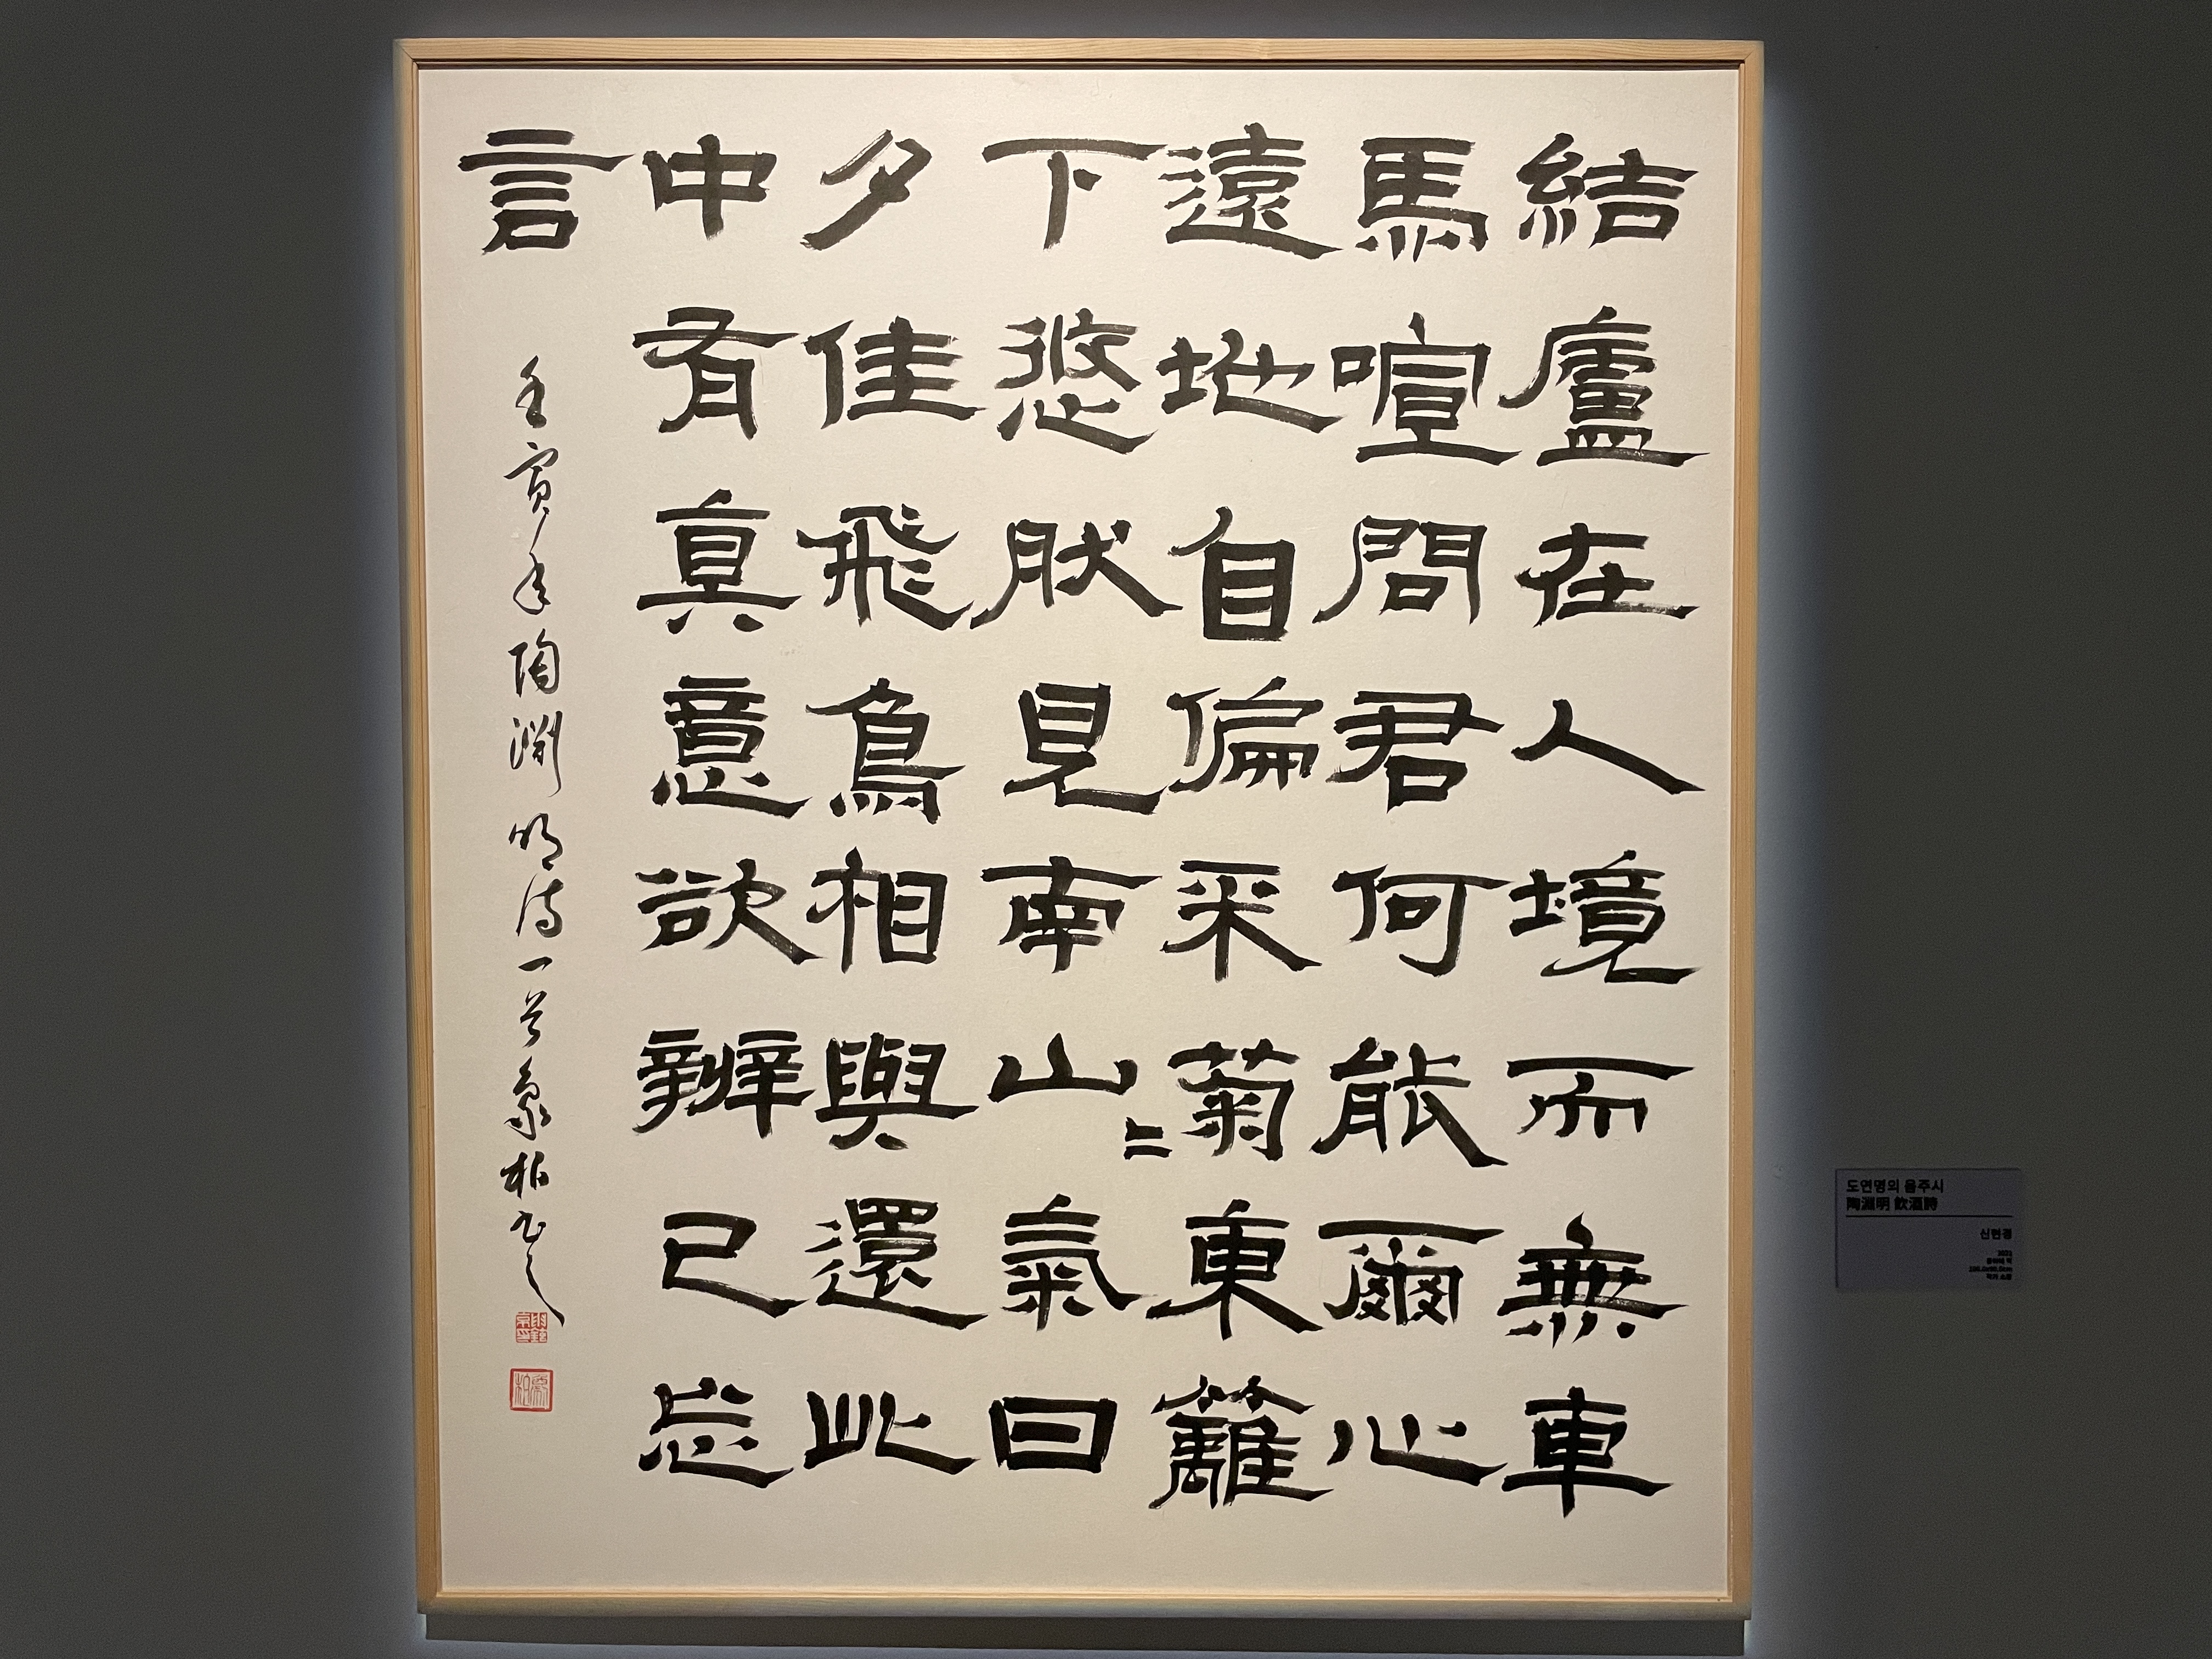 結廬在人境而無車
馬喧問君何能爾心
遠地自偏采菊東籬
下悠然見南山〻氣日
夕佳飛鳥相與還此
中有眞意欲辨已忘
言
壬寅年陶淵明詩一首象柏書之
도연명의 음주시
陶淵明 飮酒詩
신현경